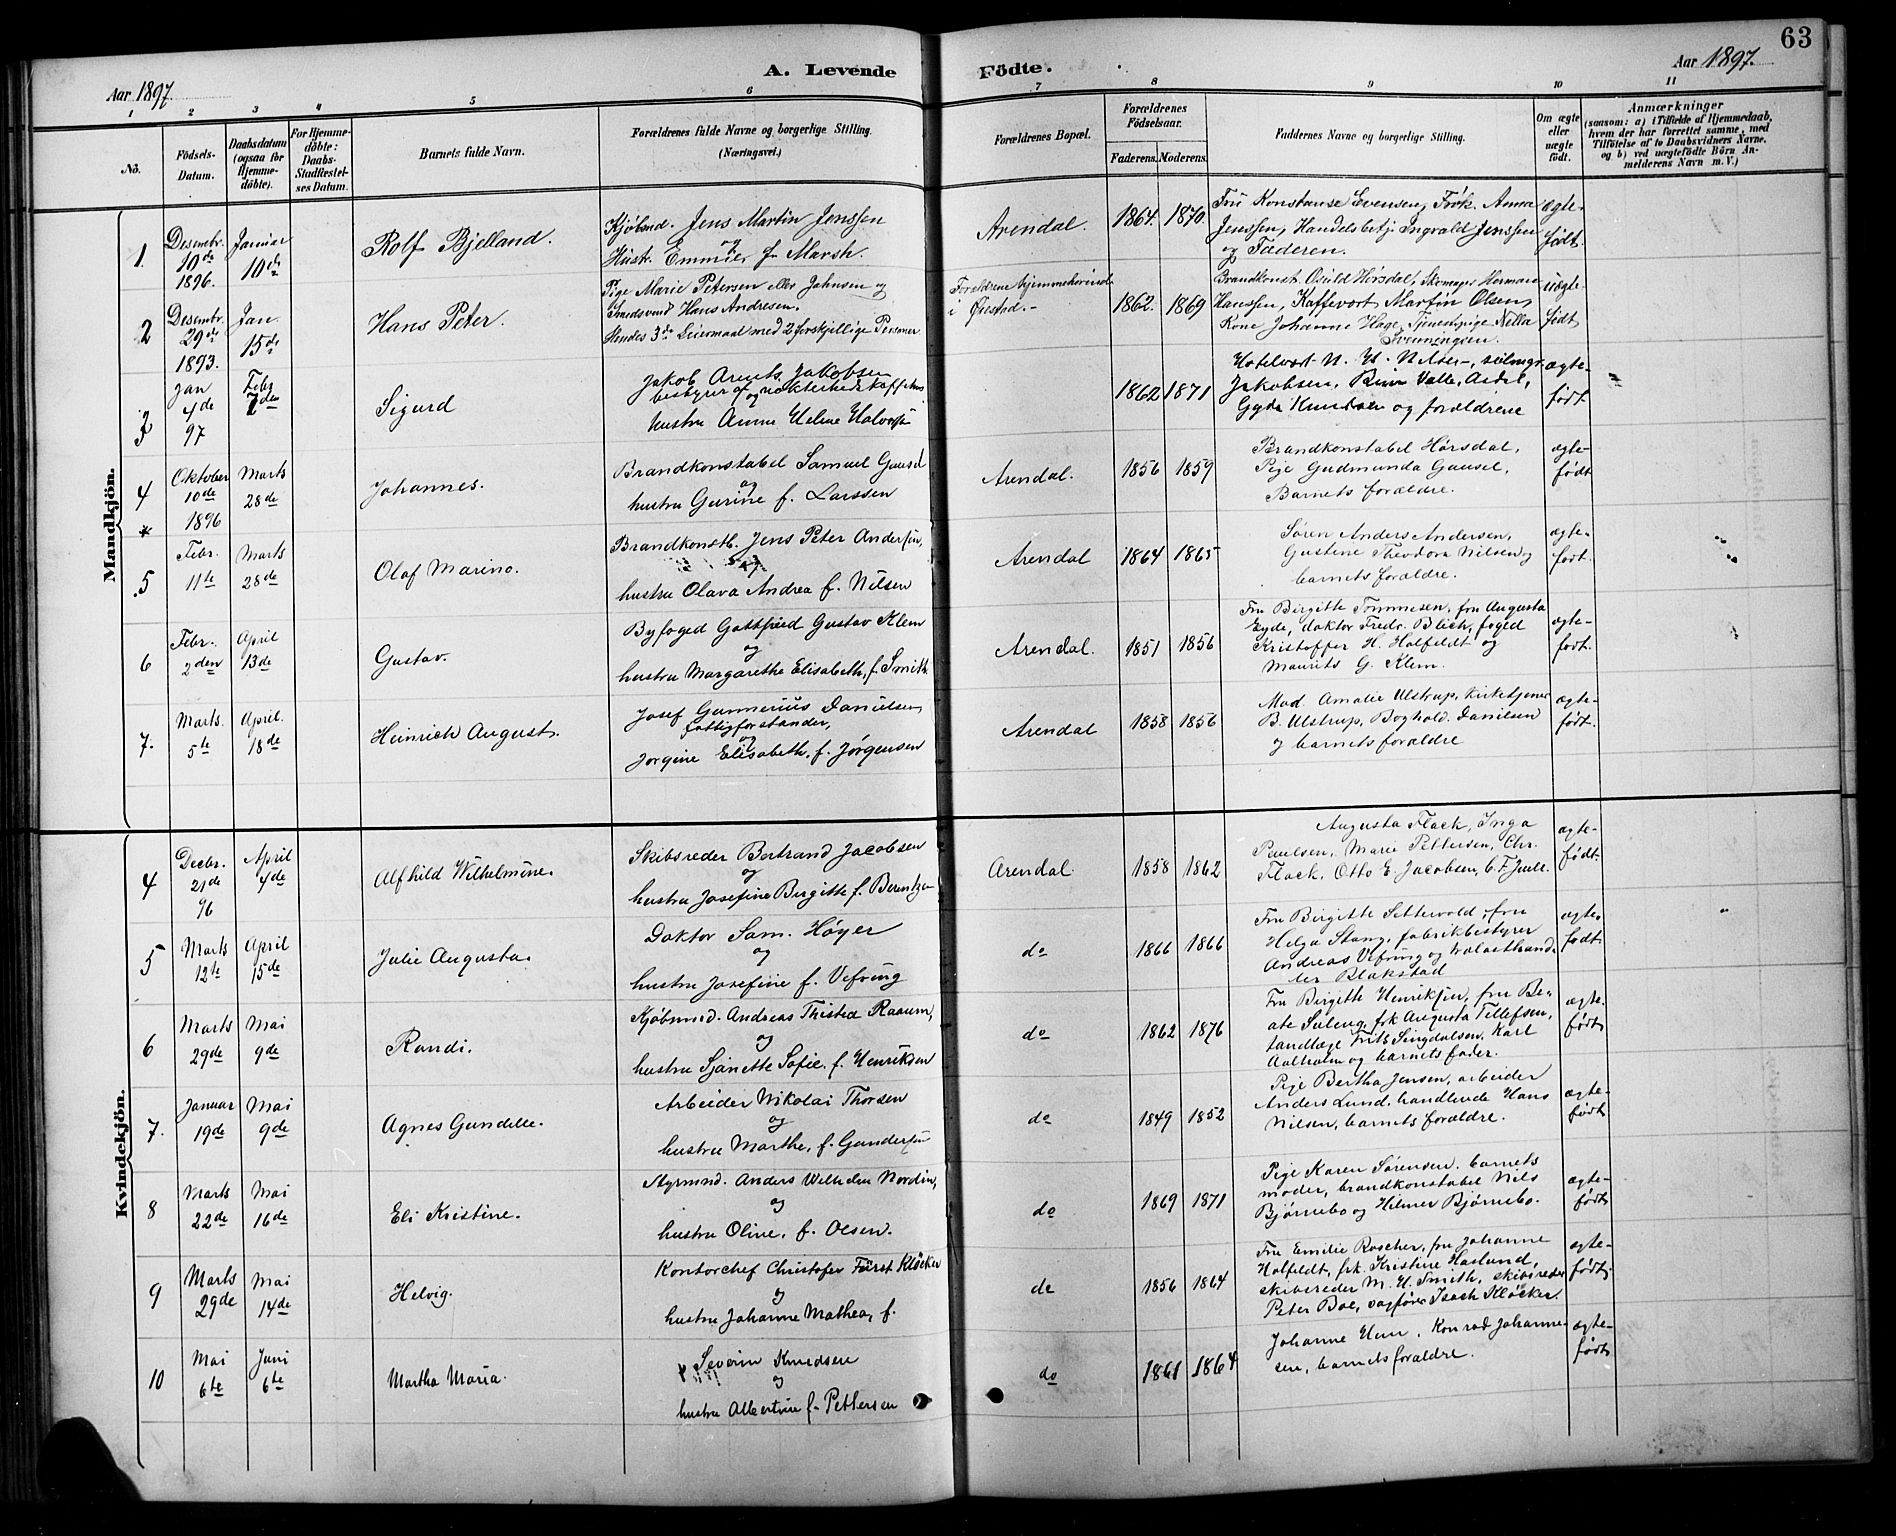 63
Aar 1897.
A. Levende Födte.
Aar 1897.
1 2 3 4 5 6 7 8 9 10 11
No.
Födsels-Datum.
Daabsdatum (ogsaa for Hjemme-döbte).
For Hjemme-döbte: Daabs-Stadfestel-ses Datum.
Barnets fulde Navn.
Forældrenes fulde Navne og borgerlige Stilling.
(Næringsvei.)
Forældrenes Bopæl.
Forældrenes Födselsaar.
Faderens. Moderens.
Faddernes Navne og borgerlige Stilling.
Om ægte eller uægte födt.
Anmærkninger
(saasom: a) i Tilfælde af Hjemmedaab, hvem der har forrettet samme, med Tilföielse af to Daabsvidners Navne, og b) ved uægtefödte Börn An-melderens Navn m. V.)
Mandkjön.
1. Desembr. 10de 1896. Januar 10de Rolf Bjelland.
Kjøbmd. Jens Martin Jenssen
og
Hustr. Emmie f. Marsh.
Arendal. 1864. 1870.
Fru Konstanse Evensen, Frøk. Anna
Jenssen, Handelsbetj. Ingvald Jenssen
og Faderen.
ægte-født.
2 Desembr. 29de 1893. Jan. 15de Hans Peter.
Pige Marie Petersen eller Johnsen og
Smedsvend Hans Andresen.
Hendes 3de Leiermaal med 2 forskjellige Personer
Forældrene hjemmehørende
i Øiestad.- 1862. 1869
Brandkonst. Osuld Hørsdal, Skomager Herman
Hanssen, Kaffevert Martin Olsen,
Kone Johanne Hage, Tjenestepige Nella
Frenningsen.
uægte-født
3 Jan 4de 97 Febr 7de Sigurd
Jakob Arnts Jakobsen
bestyrer af nøkterhedskaffehus
og
hustru Anne Helene Halvors
1862 1871
Hotelvert N. H. Nilsen,
Jakobsen,
Gyda Knudsen og forældrene
ægte-født.
4 * Oktober 10de 1896 Marts 28de Johannes.
Brandkonstabel Samuel Gausel
og
hustru Gurine f. Larssen
Arendal. 1856 1859
Brandkonstabel Hørsdal,
Pige Gudmunda Gausel,
Barnets forældre.
ægte-født
.5 Febr. 11te Marts 28de Olaf Marino.
Brandkonstb. Jens Peter Andersen,
og
hustru Olava Andrea f. Nilsen
Arendal 1864 1865
Søren Anders Andersen,
Gustene Theodora Nilsen og
barnets forældre.
ægte-født.
6 Febr. 2den April 13de Gustav.
Byfoged Gottfried Gustav Klem
og
hustru Margarethe Elisabeth, f. Smith.
Arendal. 1851 1856
Fru Birgitte Tommesen, fru Augusta
Eyde, doktor Fredr. Blich, foged
Kristoffer H. Holfeldt og
Maurits G. Klem.
ægte-født.
7. Marts. 5te April. 18de Heinrich August.
Josef Gunnerius Danielsen,
fattigforstander,
og
Jorgine Elisabeth. f. Jørgensen
Arendal 1858 1856
Mad. Amalie Ulstrup, Kirketjener
B. Ulstrup, Boghold. Danielsen
og barnets forældre
ægte-født.
Kvindekjön.
4 Decbr. 21de 96 April 4de Alfhild Wilhelmine.
Skibsreder Bertrand Jacobsen
og
hustru Josefine Birgitte f. Berentzen
Arendal 1858 1862
Augusta Flack, Inga
Paulsen, Marie Pettersen, Chr.
Flack, Otto E. Jacobsen, C. F. Juell.
ægte-født.
5 Marts 12te April 15de Julie Augusta.
Doktor Sam. Høyer
og
hustru Josefine f. Vefring
do 1866 1866
Fru Birgitte Settevold, fru
Helga Stang, fabrikbestyrer
Andreas Vefring og trælasthand-
ler Blakstad
ægte-født.
6 Marts 29de Mai 9de Randi.
Kjøbmnd. Andreas Thisted Raaum,
og
hustru Sjanette Sofie. f. Henriksen
do 1862 1876
Fru Birgitte Henriksen, fru Be-
ate Suleng, frk Augusta Tellefsen,
tandlæge Frits Singdalsen, Karl
Aalholm og barnets fader.
ægte-født
7. Januar 19de Mai 9de Agnes Gundelle.
Arbeider Nikolai Thorsen
og
hustru Marthe, f. Gundersen
do 1849 1852
Pige Bertha Jensen, arbeider
Anders Lund, handlende Hans
Nilsen, barnets forældre.
ægte-født
8 Marts 22de Mai 16de Eli Kristine.
Styrmnd. Anders Wilhelm Nordin,
og
hustru Oline. f. Olsen.
do 1869 1871
Pige Karen Sørensen. barnets
moder, brandkonstabel Nils
Bjørnebo og Hilmer Bjørnebo.
ægte-født
9 Marts 29de Mai 14de Helvig.
Kontorchef Christofer Fürst Kløcker
og
hustru Johanne Mathea, f.
do 1856 1864
Fru Emilie Roscher, fru Johanne
Holfeldt, frk. Kristine Haslund,
skibsreder M. H. Smith, skibsreder
Peter Boe, sagfører Isach Kløcker.
ægte-født
10 Mai 6te Juni 6te Martha Maria.
Severin Knudsen
og
hustru Albertine f. Pettersen
do 1861 1864
Johanne Konrad Johanne-
sen, barnets forældre.
ægte-født